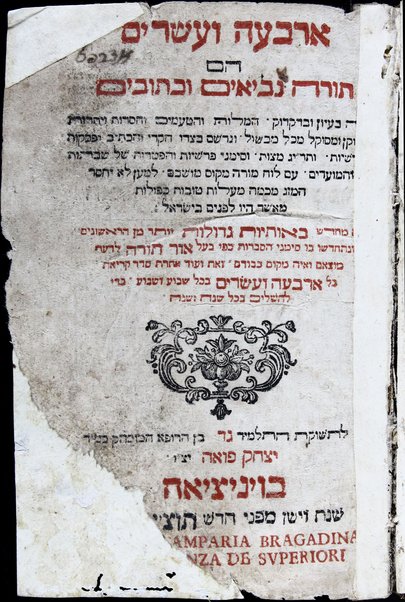 ארבעה ועשרים
הם
תורה נביאים וכתובים
בעיון ובדקדוק המלות והטעמים וחסרות ויתרות
ומסוקל מכל מכשול ונרשם בצדו הקרי והכתיב ופסקות
ותריג מצות וסימני פרשיות והפטרות של שבתות
והמועדים עם לוח מורה מקום מושבם למען לא יחסר
המזג מכמה מעלות טובות כפולות
מאשר היו לפנים בישראל
מחדש באותיות גדולות יותר מן הראשונים
ונתחדשו בו סימני הסברות כפי בעל אור תורה לדעת
מוצאם ואיה מקום כבודם זאת ועוד אחרת סדר קריאת
כל ארבעה ועשרים בכל שבוע ושבוע כדי
להשלים בכל שנה ושנה
לתשוקת התלמיד גד בן הרופא המומחה
יצחק פואה יצ״ו
בויניציאה
שנת זישן מפני חדש תוציאו
STAMPARIA BRAGADINA
DE SVPERIORI